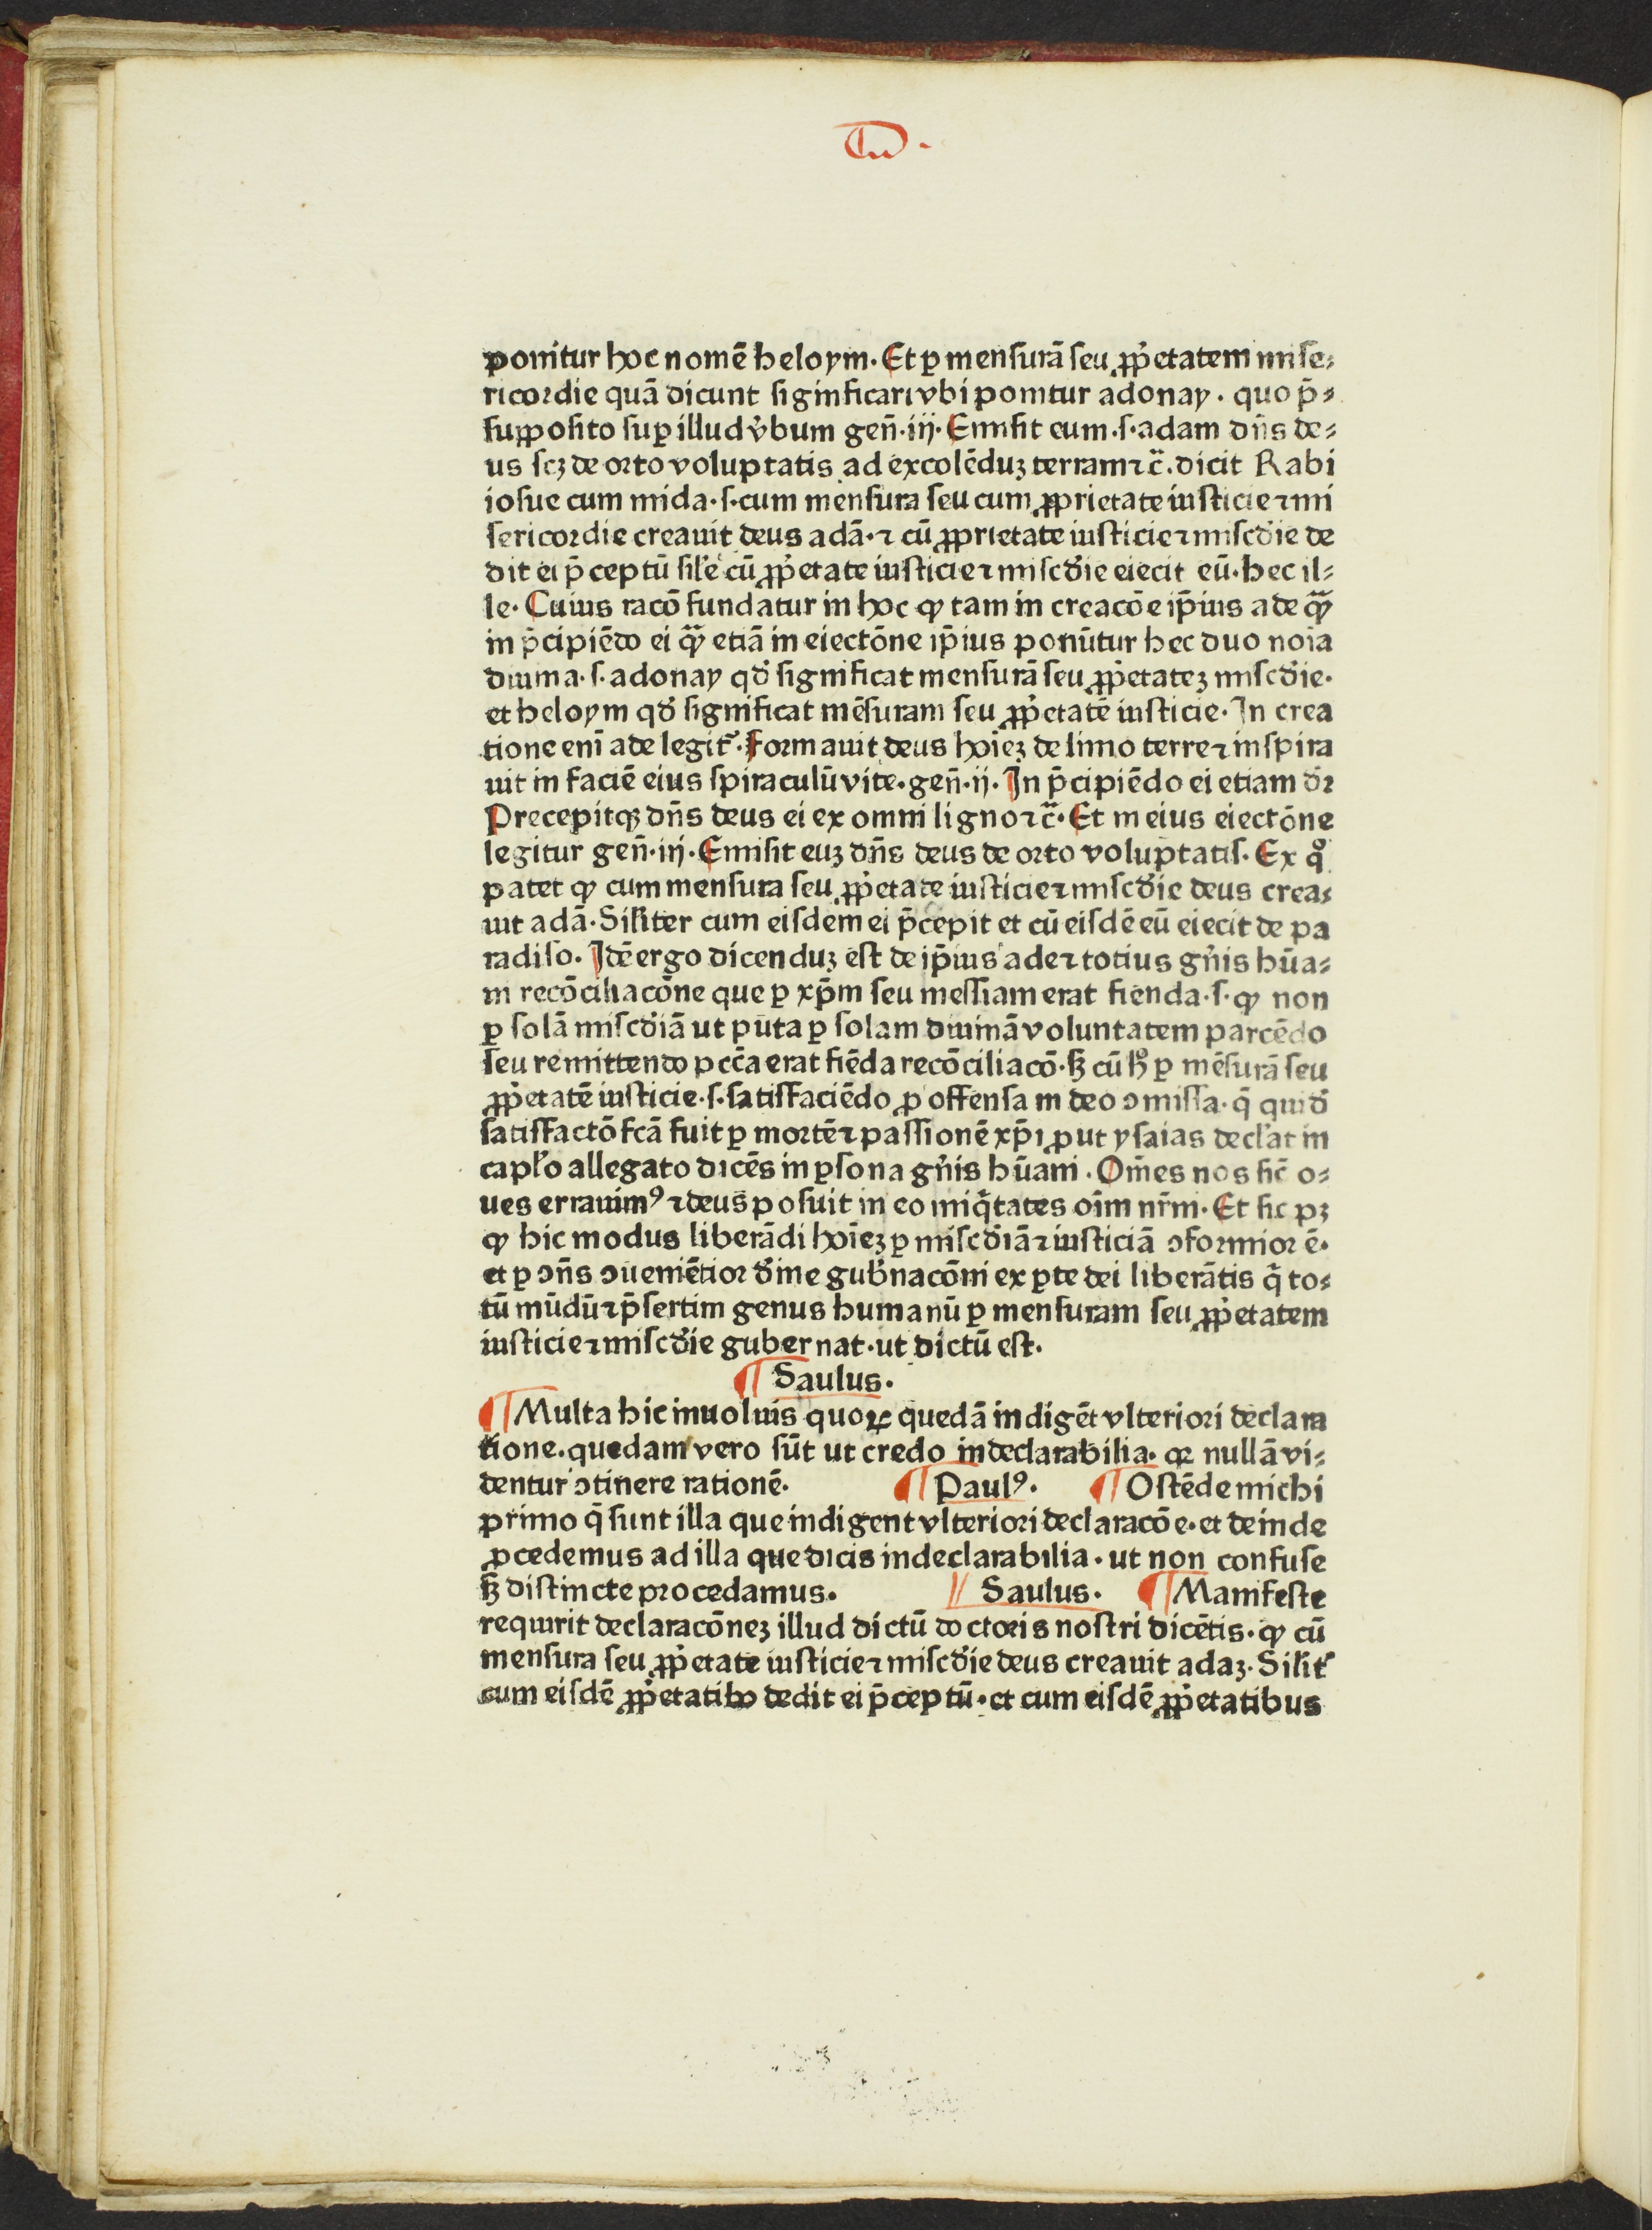 ponitur hoc nomē heloym. Et ꝑ mensurā seu ꝓpͥetatem mise⸗
ricordie quā dicunt significari vbi ponitur adonay. quo p̄⸗
supposito suꝑ illud v̓bum gen̄.iij. Emisit eum .s. adam dn̄s de⸗
us scꝫ de orto voluptatis ad excolēduꝫ terram ⁊c̄. dicit Rabi
iosue cum mida .s. cum mensura seu cum ꝓprietate iusticie ⁊ mi
sericordie creauit deus adā. ⁊ cū ꝓprietate iusticie ⁊ misc̓die de
dit ei p̄ceptū sil̓e cū ꝓpͥetate iusticie ⁊ misc̓die eiecit eū. hec il⸗
le. Cuius racō fundatur in hoc ꝙ tam in creacōe ip̄ius ade ꝙ̄
in p̄cipiēdo ei ꝙ̄ etiā in eiectōne ip̄ius ponūtur hec duo noīa
diuina .s. adonay qd̓ significat mensurā seu ꝓpͥetateꝫ misc̓die.
et heloym qd̓ significat mēsuram seu ꝓpͥetatē iusticie. In crea
tione enī ade legit᷑. Formauit deus hoīeꝫ de limo terre ⁊ inspira
uit in faciē eius spiraculū vite. gen̄.ij. In p̄cipiēdo ei etiam d̓r
Precepitqꝫ dn̄s deus ei ex omni ligno ⁊c̄. Et in eius eiectōne
legitur gen̄.iij. Emisit euꝫ dn̄s deus de orto voluptatis. Ex qͦ
patet ꝙ cum mensura seu ꝓpͥetate iusticie ⁊ misc̓die deus crea⸗
uit adā. Siliter cum eisdem ei p̄cepit et cū eisdē eū eiecit de pa
radiso. Idē ergo dicenduꝫ est de ip̄ius ade ⁊ totius gn̓is hūa⸗
ni recōciliacōne que ꝑ xp̄m seu messiam erat fienda .s. ꝙ non
ꝑ solā misc̓diā ut puta ꝑ solam diuinā voluntatem parcēdo
seu remittendo pcc̄a erat fiēda recōciliacō. sꝫ cū hͦ ꝑ mēsurā seu
ꝓpͥetatē iusticie .s. satisfaciēdo ꝓ offensa in deo ꝯmissa. q̄ quid̓
satisfactō fc̄ā fuit ꝑ mortē ⁊ passionē xp̄i ꝓut ysaias decl̓at in
capl̓o allegato dicēs in ꝑsona gn̓is hūani. Om̄es nos sic̄ o⸗
ues errauimꝰ ⁊ deus posuit in eo iniqͥtates oīm nr̄m. Et sic pꝫ
ꝙ hic modus liberādi hoīeꝫ ꝑ misc̓diā ⁊ iusticiā ꝯformior ē.
et ꝑ ꝯn̄s ꝯueniētior d̓ine gub̓nacōni ex ꝑte dei liberātis qͥ to⸗
tū mūdū ⁊ p̄sertim genus humanū ꝑ mensuram seu ꝓpͥetatem
iusticie ⁊ misc̓die gubernat. ut dictū est.
¶ Saulus.
¶ Multa hic inuoluis quoꝝ quedā indigēt vlteriori declara
tione. quedam vero sūt ut credo indeclarabilia. qꝛ nullā vi⸗
dentur ꝯtinere rationē. ¶ Paulꝰ. ¶ Ostēde michi
primo q̄ sunt illa que indigent vlteriori declaracōe. et deinde
ꝓcedemus ad illa que dicis indeclarabilia. ut non confuse
sꝫ distincte procedamus. Saulus. ¶ Manifeste
requirit declaracōneꝫ illud dictū doctoris nostri dicētis. ꝙ cū
mensura seu ꝓpͥetate iusticie ⁊ misc̓die deus creauit adaꝫ. Silit᷑
cum eisdē ꝓpͥetatibꝰ dedit ei p̄ceptū. et cum eisdē ꝓpͥetatibus